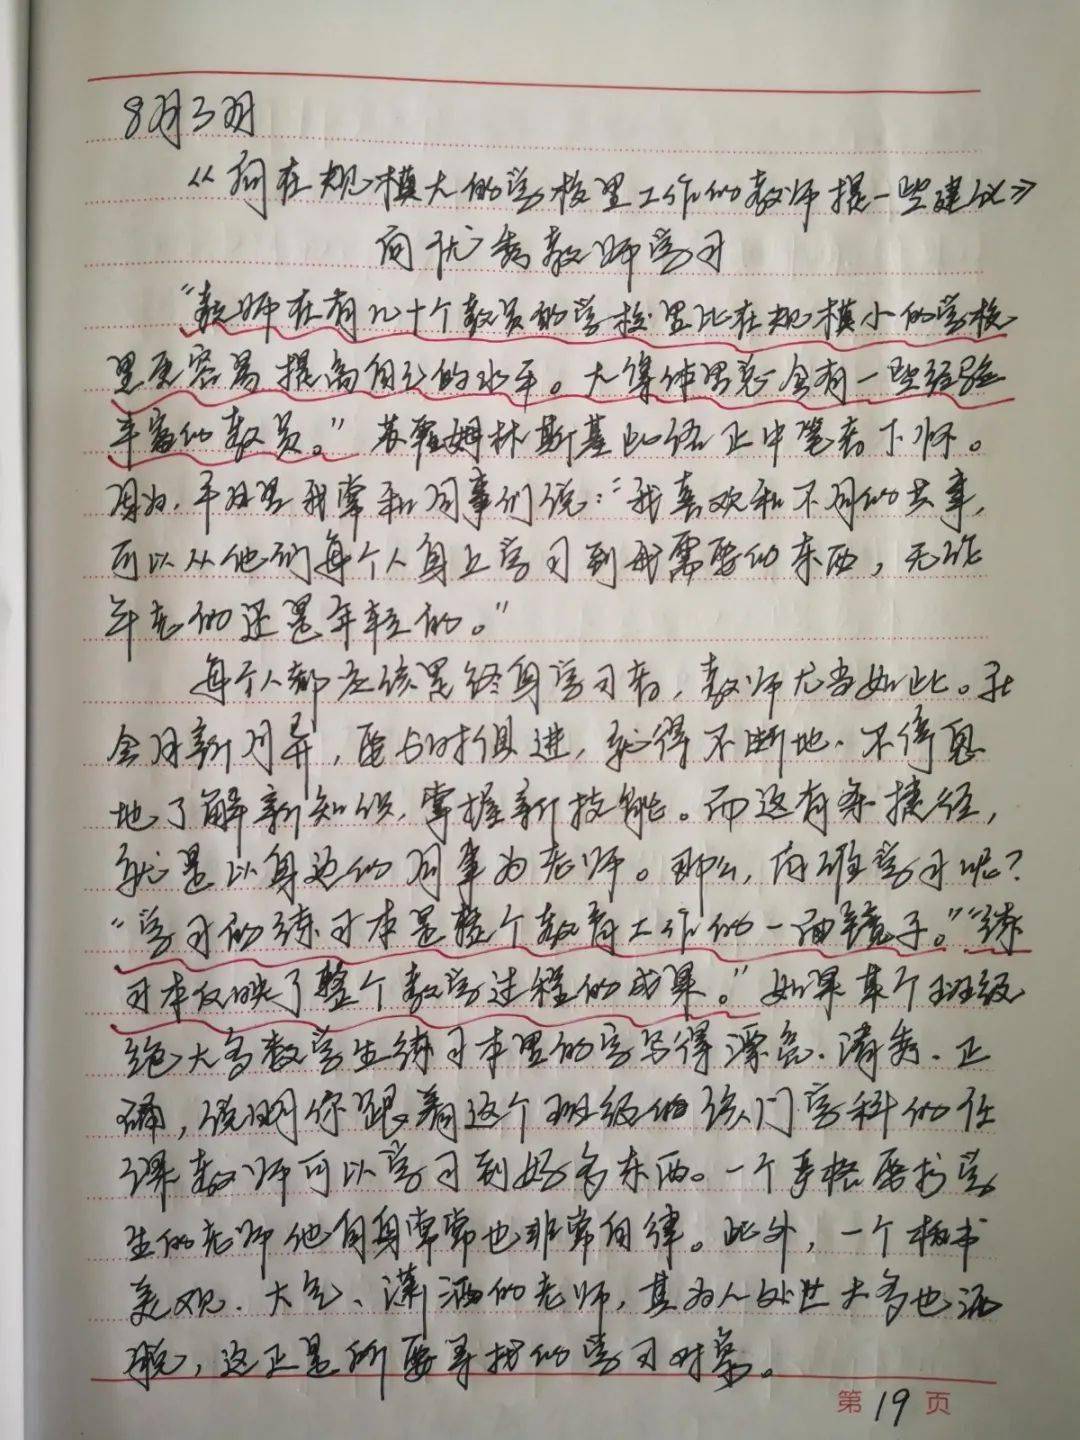 8月3日
《向在规模大的学校里工作的教师提一些建议》
向优秀教师学习
“教师在有几十个教员的学校里比在规模小的学校
里更容易提高自己的水平。大集体里总会有一些经验
丰富的教员。”苏霍姆林斯基此语正中笔者下怀。
因为,平日里我常和同事们说:“我喜欢和不同的共事,
可以从他们每个人身上学习到我需要的东西,无论
年老的还是年轻的。”
每个人都应该是终身学习者,教师尤当如此。社
会日新月异,要与时俱进,就得不断地、不停息
地了解新知识,掌握新技能。而这有条捷径,
就是以身边的同事为老师。那么,向谁学习呢?
“学习的练习本是整个教育工作的一面镜子。”“练
习本反映了整个教学过程的成果。”如果某个班级
绝大多数学生练习本里的字写得漂亮、清秀、正
确,说明你跟着这个班级的该门学科的任
课教师可以学习到好多东西。一个严格要求学
生的老师他自身常常也非常自律。此外,一个板书
美观、大气、潇洒的老师,其为人处世大多也洒
脱,这正是所要寻找的学习对象。
第19页